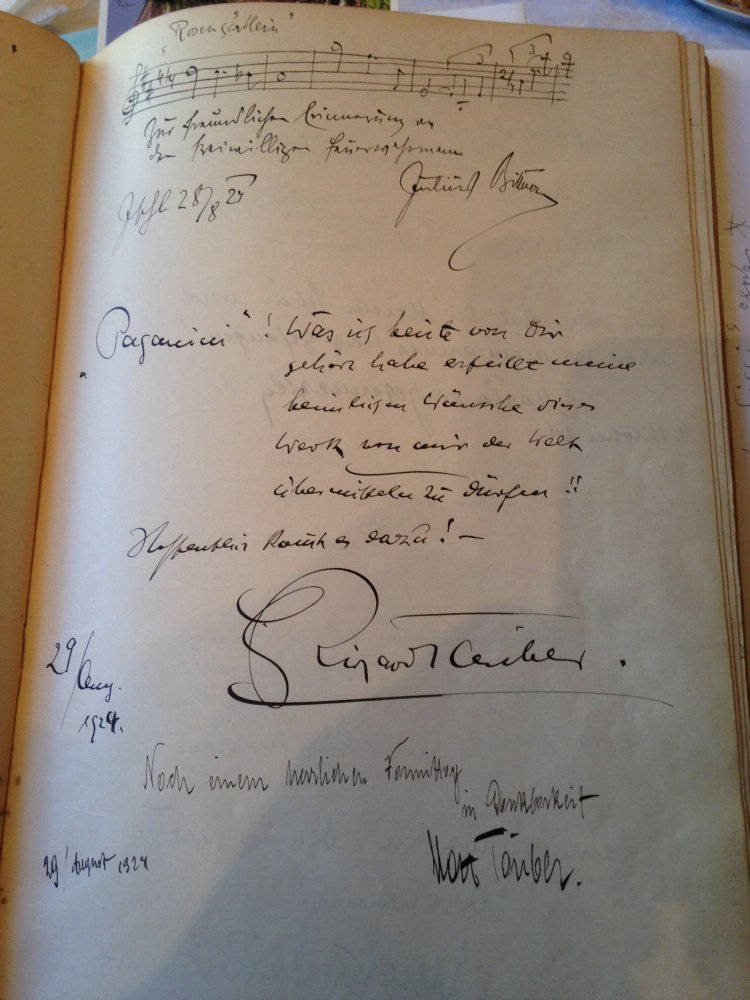 "Rosengärtlein"
Zur freundlichen Erinnerung an
den freiwilligen Feuerwehrmann
Ischl 28/8 24
Julius Bittner
"Paganini"! Was ich heute von Dir
gehört habe erfüllt meine
heimlichen Wünsche dieses
Werk von mir der Welt
übermitteln zu dürfen!!
Hoffentlich kommt es dazu! —
Richard Tauber.
29/Aug.
1924.
Nach einem herrlichen Vormittag
in Dankbarkeit
29/August 1924
Täuber.